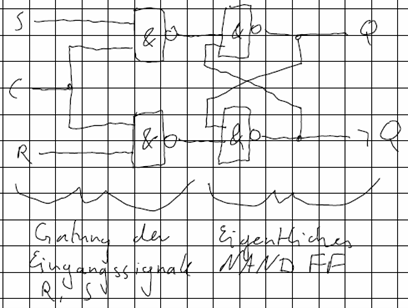 S
&
&
Q
C
R
&
&
¬Q
Gatung der
Eingangssignale
R, S
Eigentliches
NAND FF